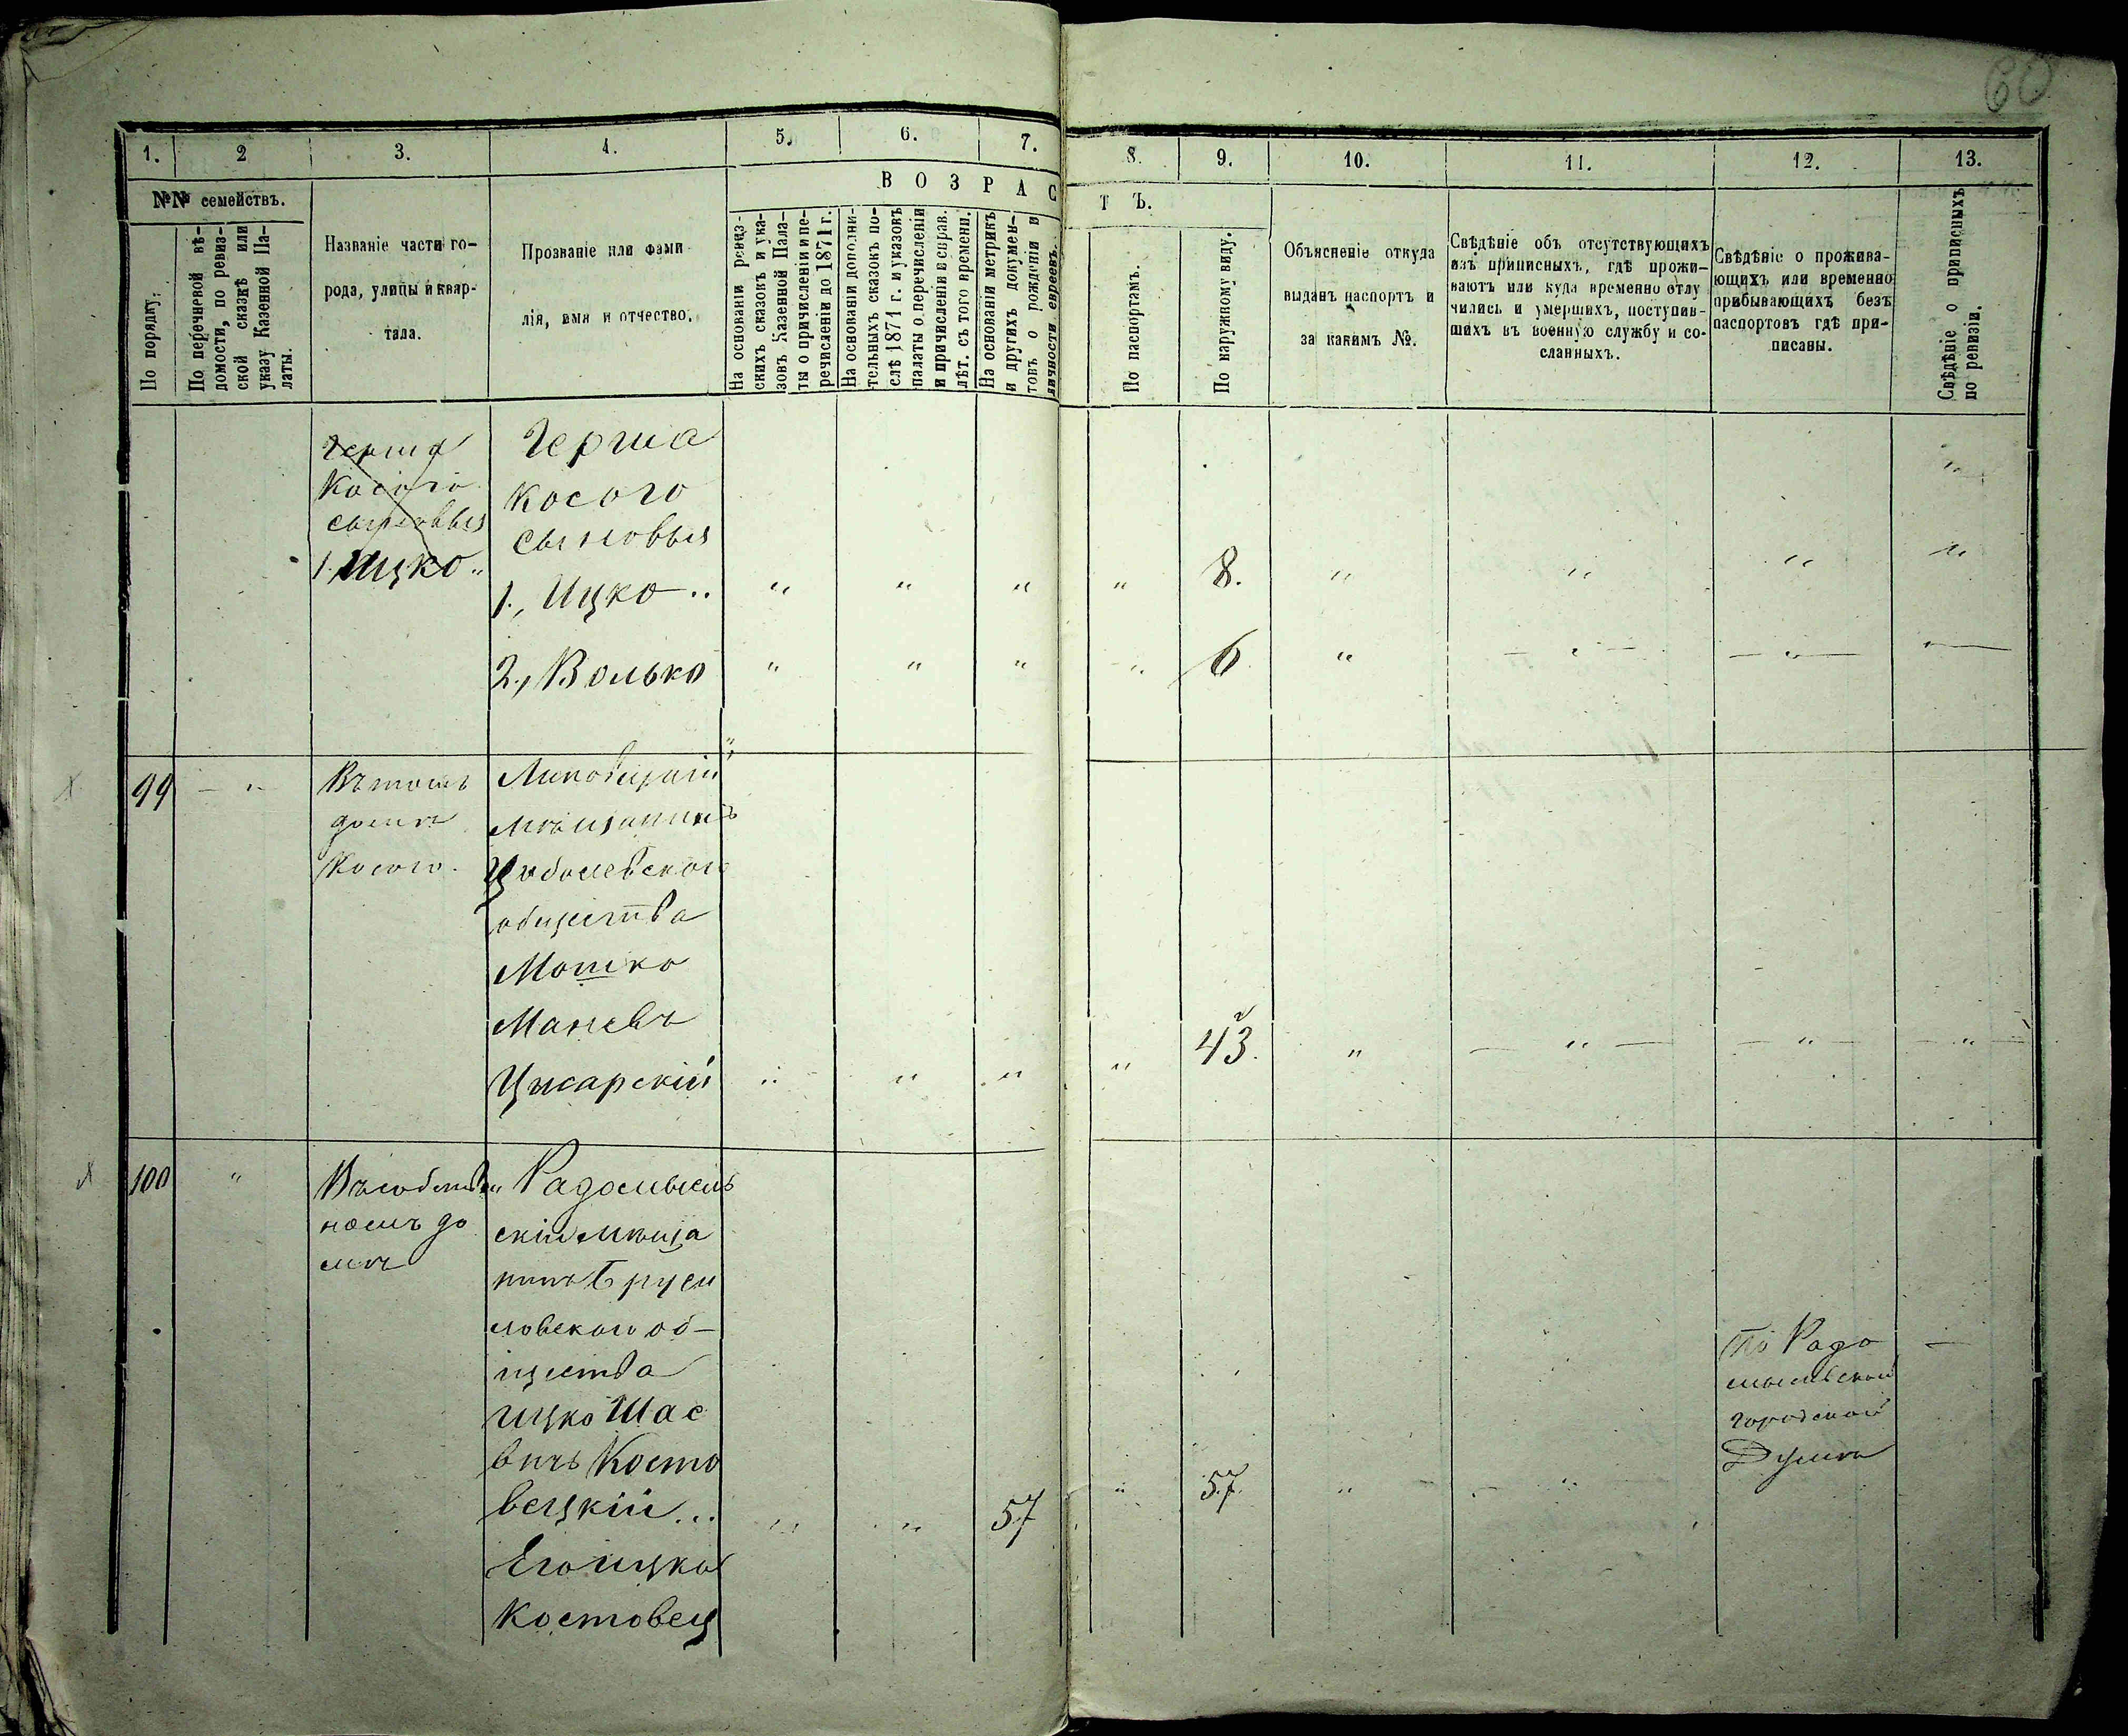 60
1. 2 3. 4. 5. 6. 7. 8. 9. 10. 11. 12. 13.
№№ семействъ.
ВОЗРАСТЪ.
По порядку.
По перечневой вѣ-
домости, по ревиз-
ской сказкѣ или
указу Казенной Па-
латы.
Названіе части го-
рода, улицы и квар-
тала.
Прозваніе или фами
лія, имя и отчество.
На основаніи ревиз-
скихъ сказокъ и ука-
зовъ Казенной Пала-
ты о причисленіи и пе-
речисленіи до 1871 г.
На основаніи дополни-
тельныхъ сказокъ по-
слѣ 1871 г. и указовъ
палаты о перечисленіи
и причисленіи и справ.
лѣт. съ того времени.
На основаніи метрикъ
и другихъ докумен-
товъ о рожденіи и
личности евреевъ.
По паспортамъ.
По наружному виду.
Объясненіе откуда
выданъ паспортъ и
за какимъ №.
Свѣдѣніе объ отсутствующихъ
изъ приписныхъ, гдѣ прожи-
ваютъ или куда временно отлу
чились и умершихъ, поступив-
шихъ въ военную службу и со-
сланныхъ.
Свѣдѣніе о прожива-
ющихъ или временно
прибывающихъ безъ
паспортовъ гдѣ при-
писаны.
Свѣдѣніе о приписныхъ
по ревизіи.
Герша
Косого
сыновья
1. Ицко „
Герша
Косого
сыновья
1., Ицко .. „ „ „ „ 8. „ „ „ „
2., Волько „ „ „ „ 6. „ — „ — — „ — —
99 — „ Въ томъ
домѣ
Косого.
Липовецкій
мѣщанинъ
Цыболевского
общества
Мошко
Маневъ
Цысарскій „ „ „ „ 43. „ — „ — — „ — — „ —
100 „ Въ собствен
номъ до
мѣ
Радомысль
скій мѣща
нинъ Бруси
ловского об-
щества
Ицко Шае
вичъ Косто
вецкій... „ „ 57 „ 57. „ — „
Его Ицка
Костовец
По Радо
мысльской
городской
Думѣ
—